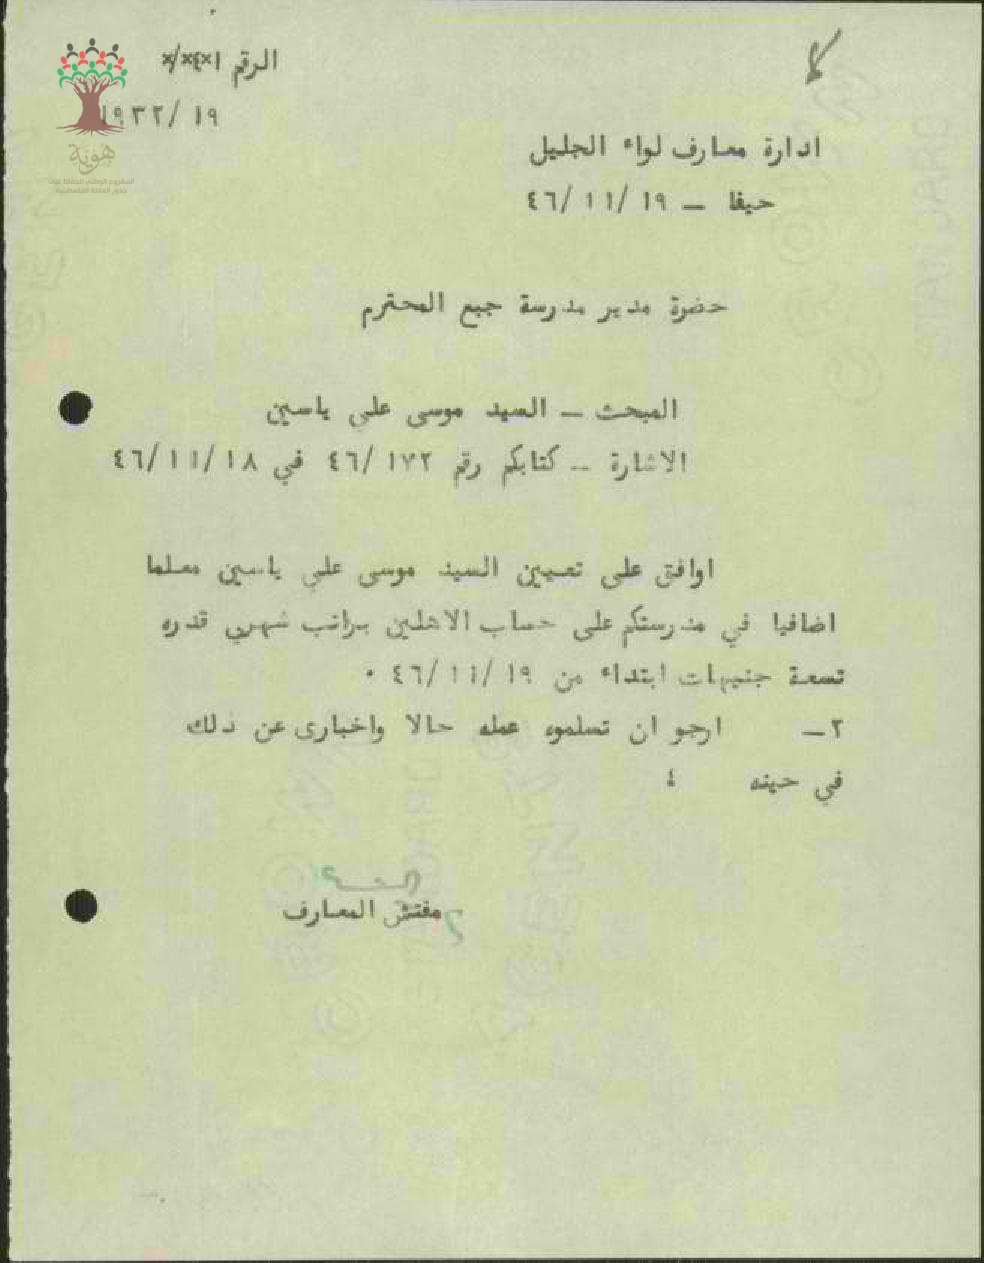 الرقم
١٩٣٢/١٩
هوية
المشروع الوطني للحفاظ على
جذور العائلة الفلسطينية
ادارة معارف لواء الجليل
حيفا – ٤٦/١١/١٩
حضرة مدير مدرسة جبع المحترم
المبحث – السيد موسى علي ياسين
الاشارة – كتابكم رقم ٤٦/١٧٢ في ٤٦/١١/١٨
اوافق على تعيين السيد موسى علي ياسين معلما
اضافيا في مدرستكم على حساب الاهلين براتب شهري قدره
تسعة جنيهات ابتداء من ٤٦/١١/١٩ ٠
٢– ارجو ان تسلموه عمله حالا واخبارى عن ذلك
في حينه ؛
مفتش المعارف